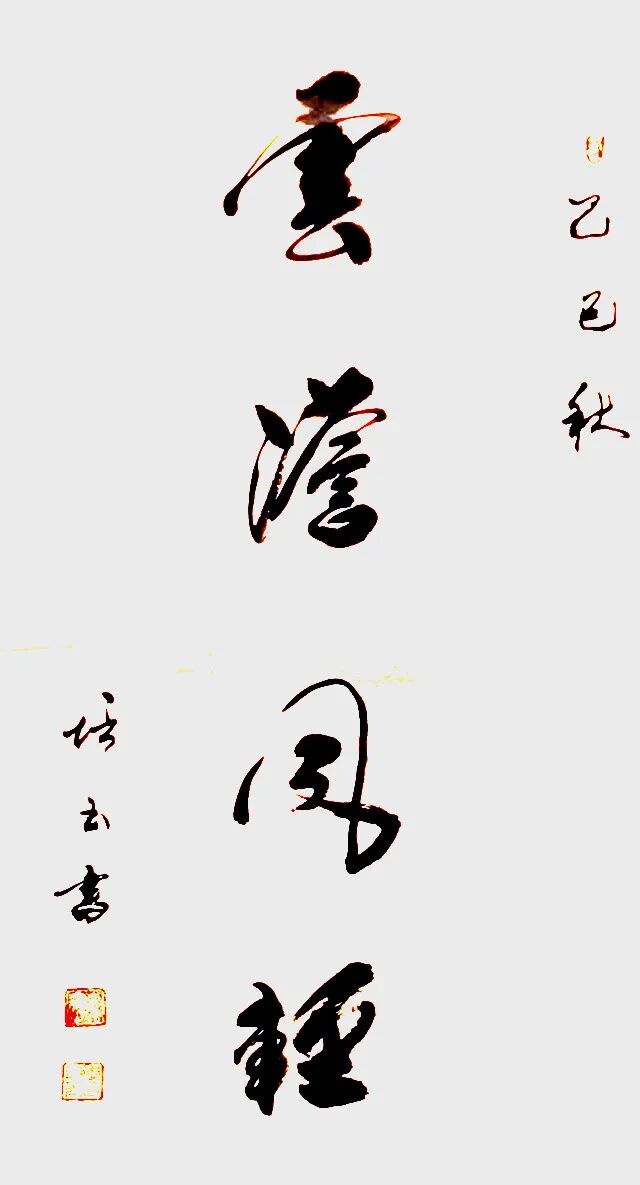 乙巳秋
雲澹風輕
培玉書